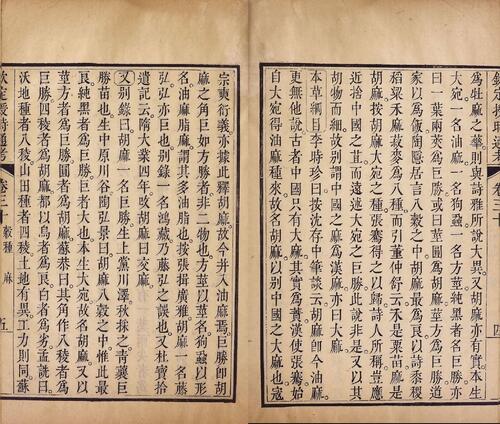 為牡麻之華則與詩雅所說大異又胡麻亦有實本生
大宛一名油麻一名狗蝨一名方莖純黑者名巨勝亦
曰一葉兩莢為巨勝或曰莖圓為胡麻莖方為巨勝道
家以為飯陶隱居言八穀之中胡麻最為良以詩黍稷
稻粱禾麻菽麥為八種而引董仲舒云禾是粟苗麻是
胡麻按胡麻大宛之種張騫得之以歸詩人所稱豈應
近捨中國之苴而遠述大宛之巨勝此說非是
胡物而細故別謂中國之麻為漢麻亦曰大麻
本草綱目李時珍曰按沈存中筆談云胡麻卽今油麻
更無他說古者中國只有大麻其實為蕡漢使張騫始
自大宛得油麻種來故名胡麻以別中國之大麻也寇
宗奭衍義亦據此釋胡麻故今并入油麻焉巨勝卽胡
麻之角巨如方勝者非二物也方莖以莖名狗蝨以形
名油麻脂麻謂其多油脂也按張揖廣雅胡麻一名藤
弘弘亦巨也別錄一名鴻藏乃藤弘之誤也又杜寶拾
遺記云隋大業四年改胡麻曰交麻
又別錄曰胡麻一名巨勝生上黨川澤秋採之青蘘巨
勝苗也生中原川谷陶弘景曰胡麻八穀之中惟此最
良純黑者為巨勝巨者大也本生大宛故名胡麻又以
莖方者為巨勝圓者為胡麻蘇恭曰其角作八稜者為
巨勝四稜者為胡麻都以烏者為良白者為劣孟詵曰
沃地種者八稜山田種者四稜土地有異工力則同蘇
欽定授時通考 卷三十 穀種 麻 五